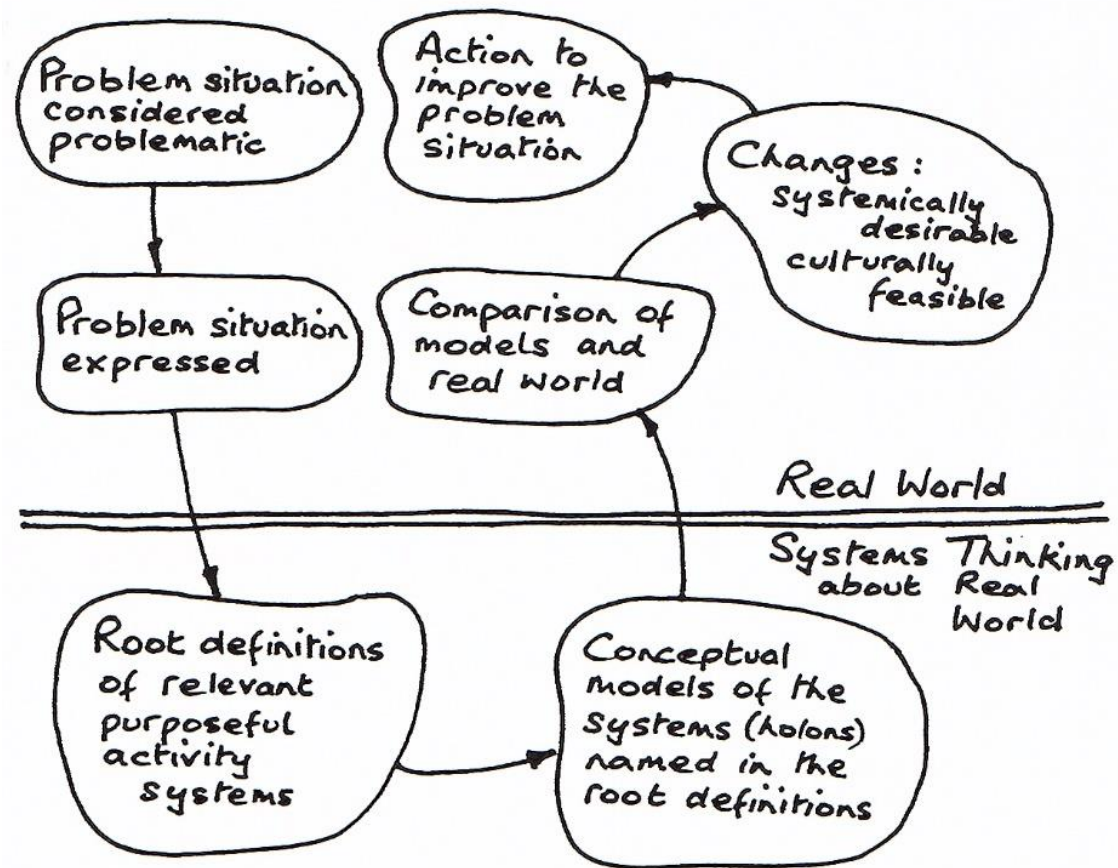 Problem situation
considered
problematic
Problem situation
expressed
Root definitions
of relevant
purposeful
activity
systems
Conceptual
models of the
systems (holons)
named in the
root definitions
Comparison of
models and
real world
Changes:
systemically
desirable
culturally
feasible
Action to
improve the
problem
situation
Real World
Systems Thinking
about Real
World